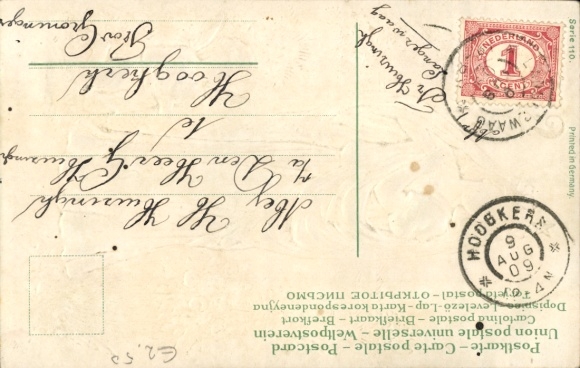 Postkarte – Carte postale – Postcard
Union postale universelle – Weltpostverein
Cartolina postale – Briefkaart – Brefkort
Dopisnice – Levelező-Lap – Karta korespondencyjna
Tarjeta postal – ОТКРЫТОЕ ПИСЬМО
Mej H Huizingh
p/a Den Heer G. Huizingh
te
Hoogkerk
Prov
Groningen
Huizingh
NEDERLAND
1
CENT
HOOGKERK
9
AUG
09
Serie 110.
Printed in Germany
€2.50